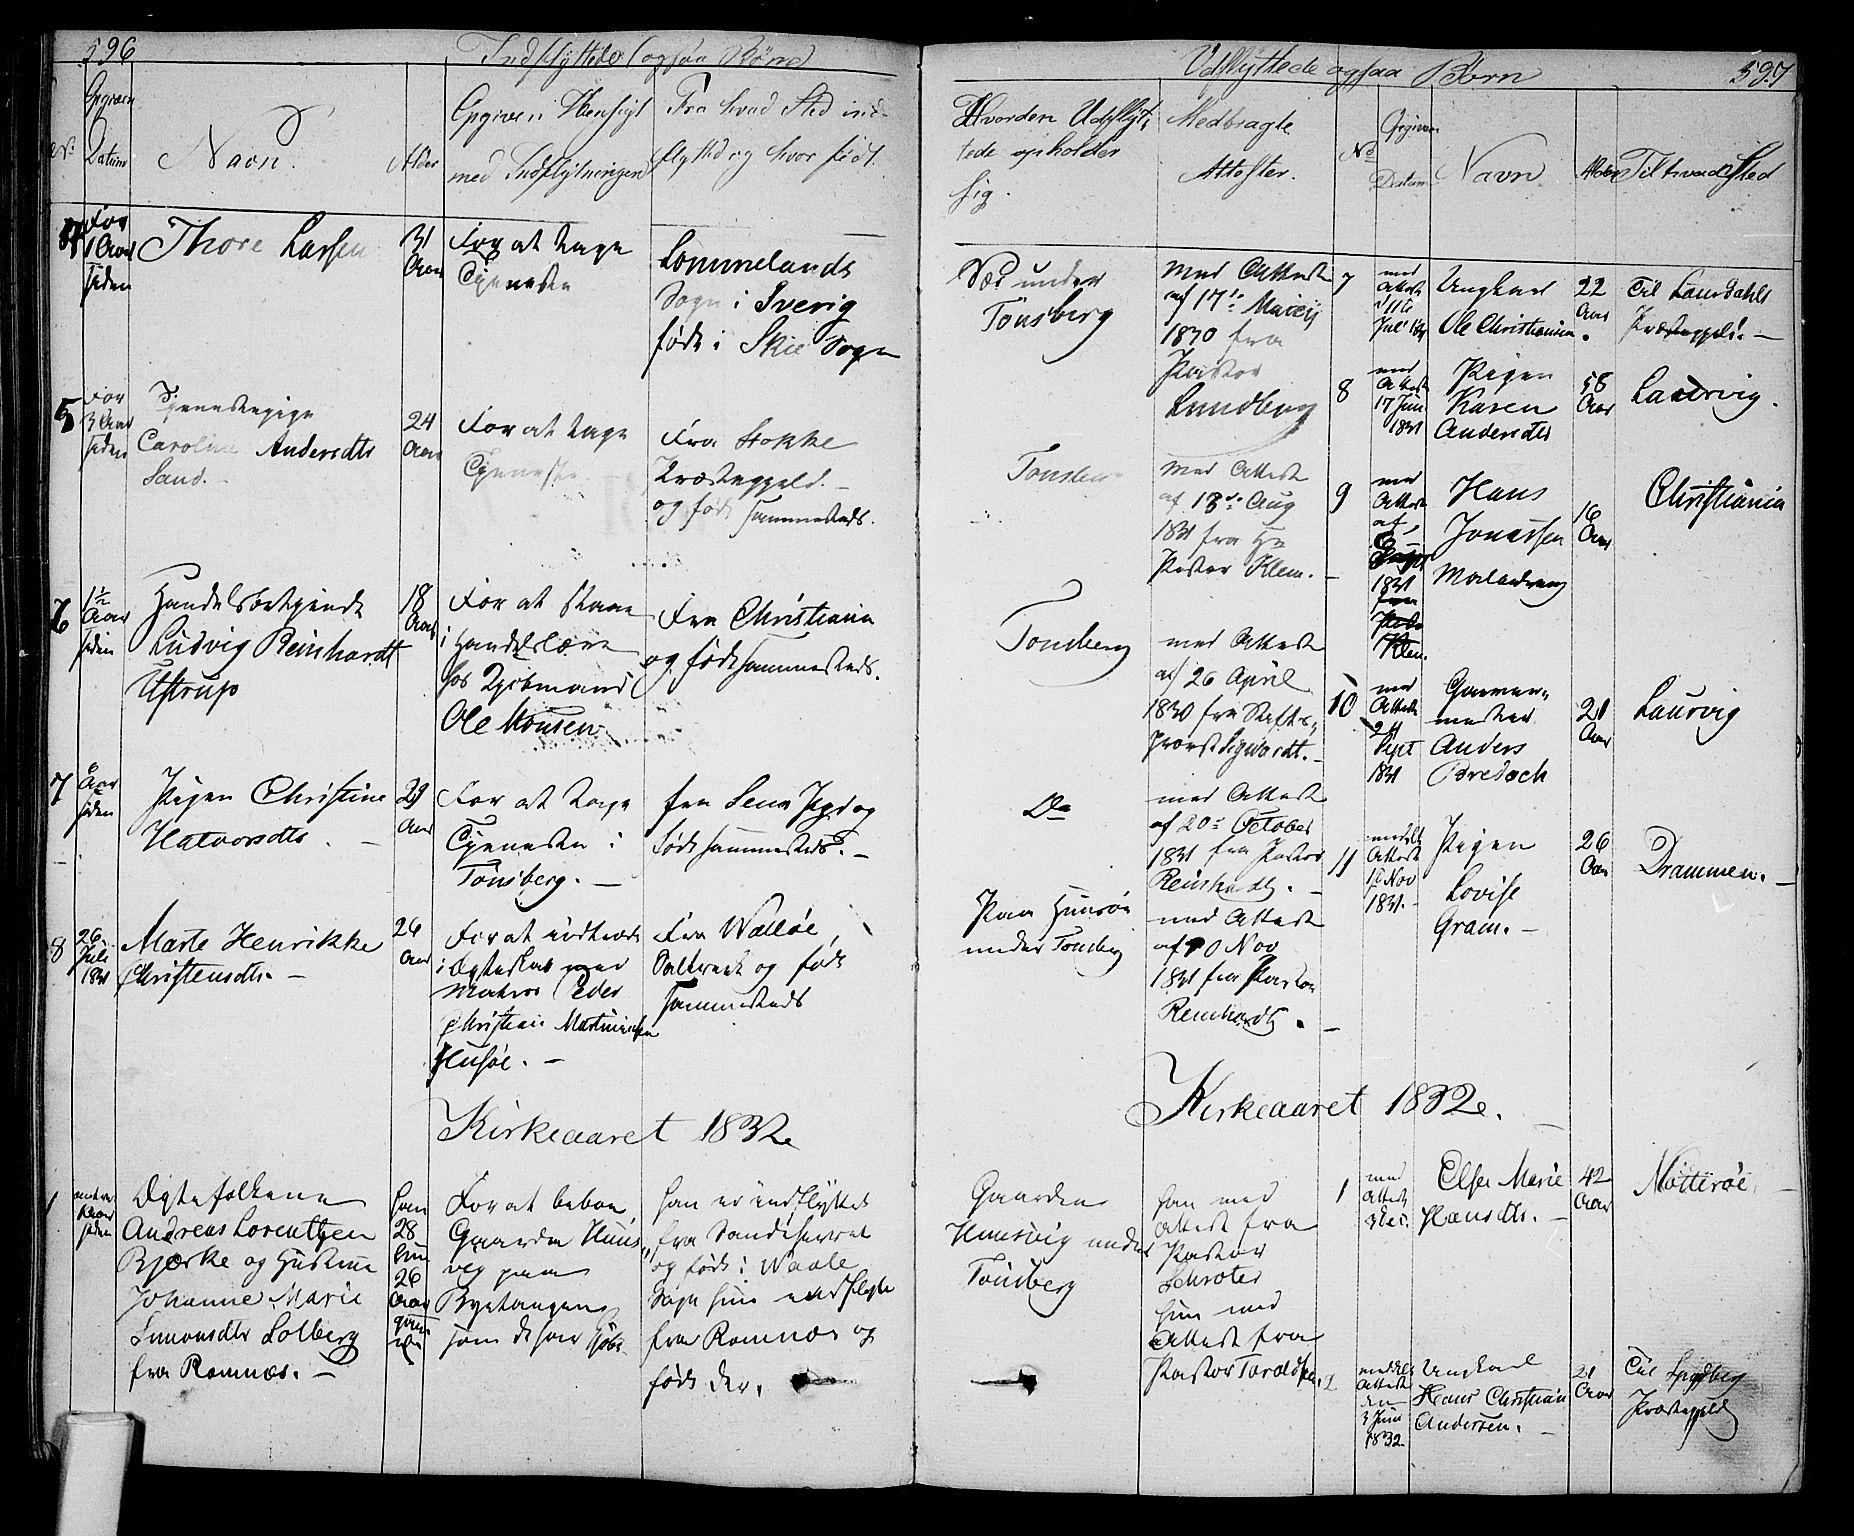 596
Indflyttede ogsaa Børn
Opgiven
Datum
Navn.
Alder
Opgiven Hensigt
med Indflytningen
Fra hvad Sted ind-
flytted og hvor født.
4
For
1 Aar
siden
Thore Larsen
31
Aar
For at tage
Tjeneste
Lommelands
Sogn i Sverig
født i Skie Sogn
5
For
3 Aar
siden
Tjenestepige
Caroline Andersdtr
Sand.
24
Aar
For at tage
Tjeneste
Fra Stokke
Præstegjeld.
og født sammesteds.
6
1½
Aar
siden
Handelsbetjendt
Ludvig Reinhardt
Ustrup
18
Aar
For at staae
i Handelslære
hos Kjøbmand
Ole Monsen
Fra Christiania
og født sammesteds.
7
Aar
siden
Pigen Christine
Halvorsdtr
29
Aar
For at tage
Tjeneste i
Tønsberg.
fra Sems Sogn og
født sammesteds.
8
26
Juli
1831
Marte Henrikke
Christensdtr.
26
Aar
For at indtræde
i Ægteskab med
Matros Peder
Christian Martininsen
Husøe.
Fra Walløe
Saltverk og født
sammesteds
Kirkeaaret 1832
1
siden
Ægtefolkene
Andreas Lorentzen
Bjerke og Hustrue
Johanne Marie
Simonsdtr Solberg
fra Ramnæs.
han
28
hun
26
Aar
For at beboe
Gaarden Huus-
vig paa
Byetangen
som de har kjøbt
han er indflyttet
fra Sandeherred
og født i Waale
Sogn hun indflytte
fra Ramnæs og
født der.
Udflyttede ogsaa Børn
597
Hvorden Udflyt-
tede opholder
sig.
Medbragte
Attester.
No
Opgiven
Datum
Navn
Alder
Til hvad Sted
under
Tønsberg
med Attest
af 17de Marcij
1830 fra
Pastor
Lundberg
7
med
Attest
11te
Juli 1831
Ungkarl
Ole Christiansen.
22
Aar
Til Laurdahls
Præstegjeld.
8
med
Attest
17 Juni
1831
Pigen
Karen
Andersdtr
58
Aar
Laurvig.
Tønsberg
med Attest
af 13de Aug
1831 fra Hr
Pastor Klem.
9
med
Attest
af
1831
Hans
Jonassen
16
Aar
Christiania
Tonsberg
med Attest
af 26 April
1830 fra Stifts-
provst Sigwardt.
10
med
Attest
24
Sept
1831
Garver-
mester
Anders
Bredoch
21
Aar
Laurvig
Do
med Attest
af 20de October
1831 fra Pastor
Reinhardt.
11
meddelt
Attest
Nov
1831.
Pigen
Lovise
Gram.
26
Aar
Drammen.
Paa Huusøe
under Tonsberg
med Attest
af 10 Nov
1831 fra Pastor
Reinhardt.
Kirkeaaret 1832.
Gaarden
Huusvig under
Tønsberg
han med
Attest fra
Pastor
Schrøter
hun med
Attest fra
Pastor Taraldsen.
1
med
Attest
Dec.
Else Marie
Hansdtr.
42
Aar
Nøtterøe
2
meddelt
Attest
den
3 Juni
1832
Ungkarl
Hans Christian
Andersen.
21
Aar
Til
Præstegjeld